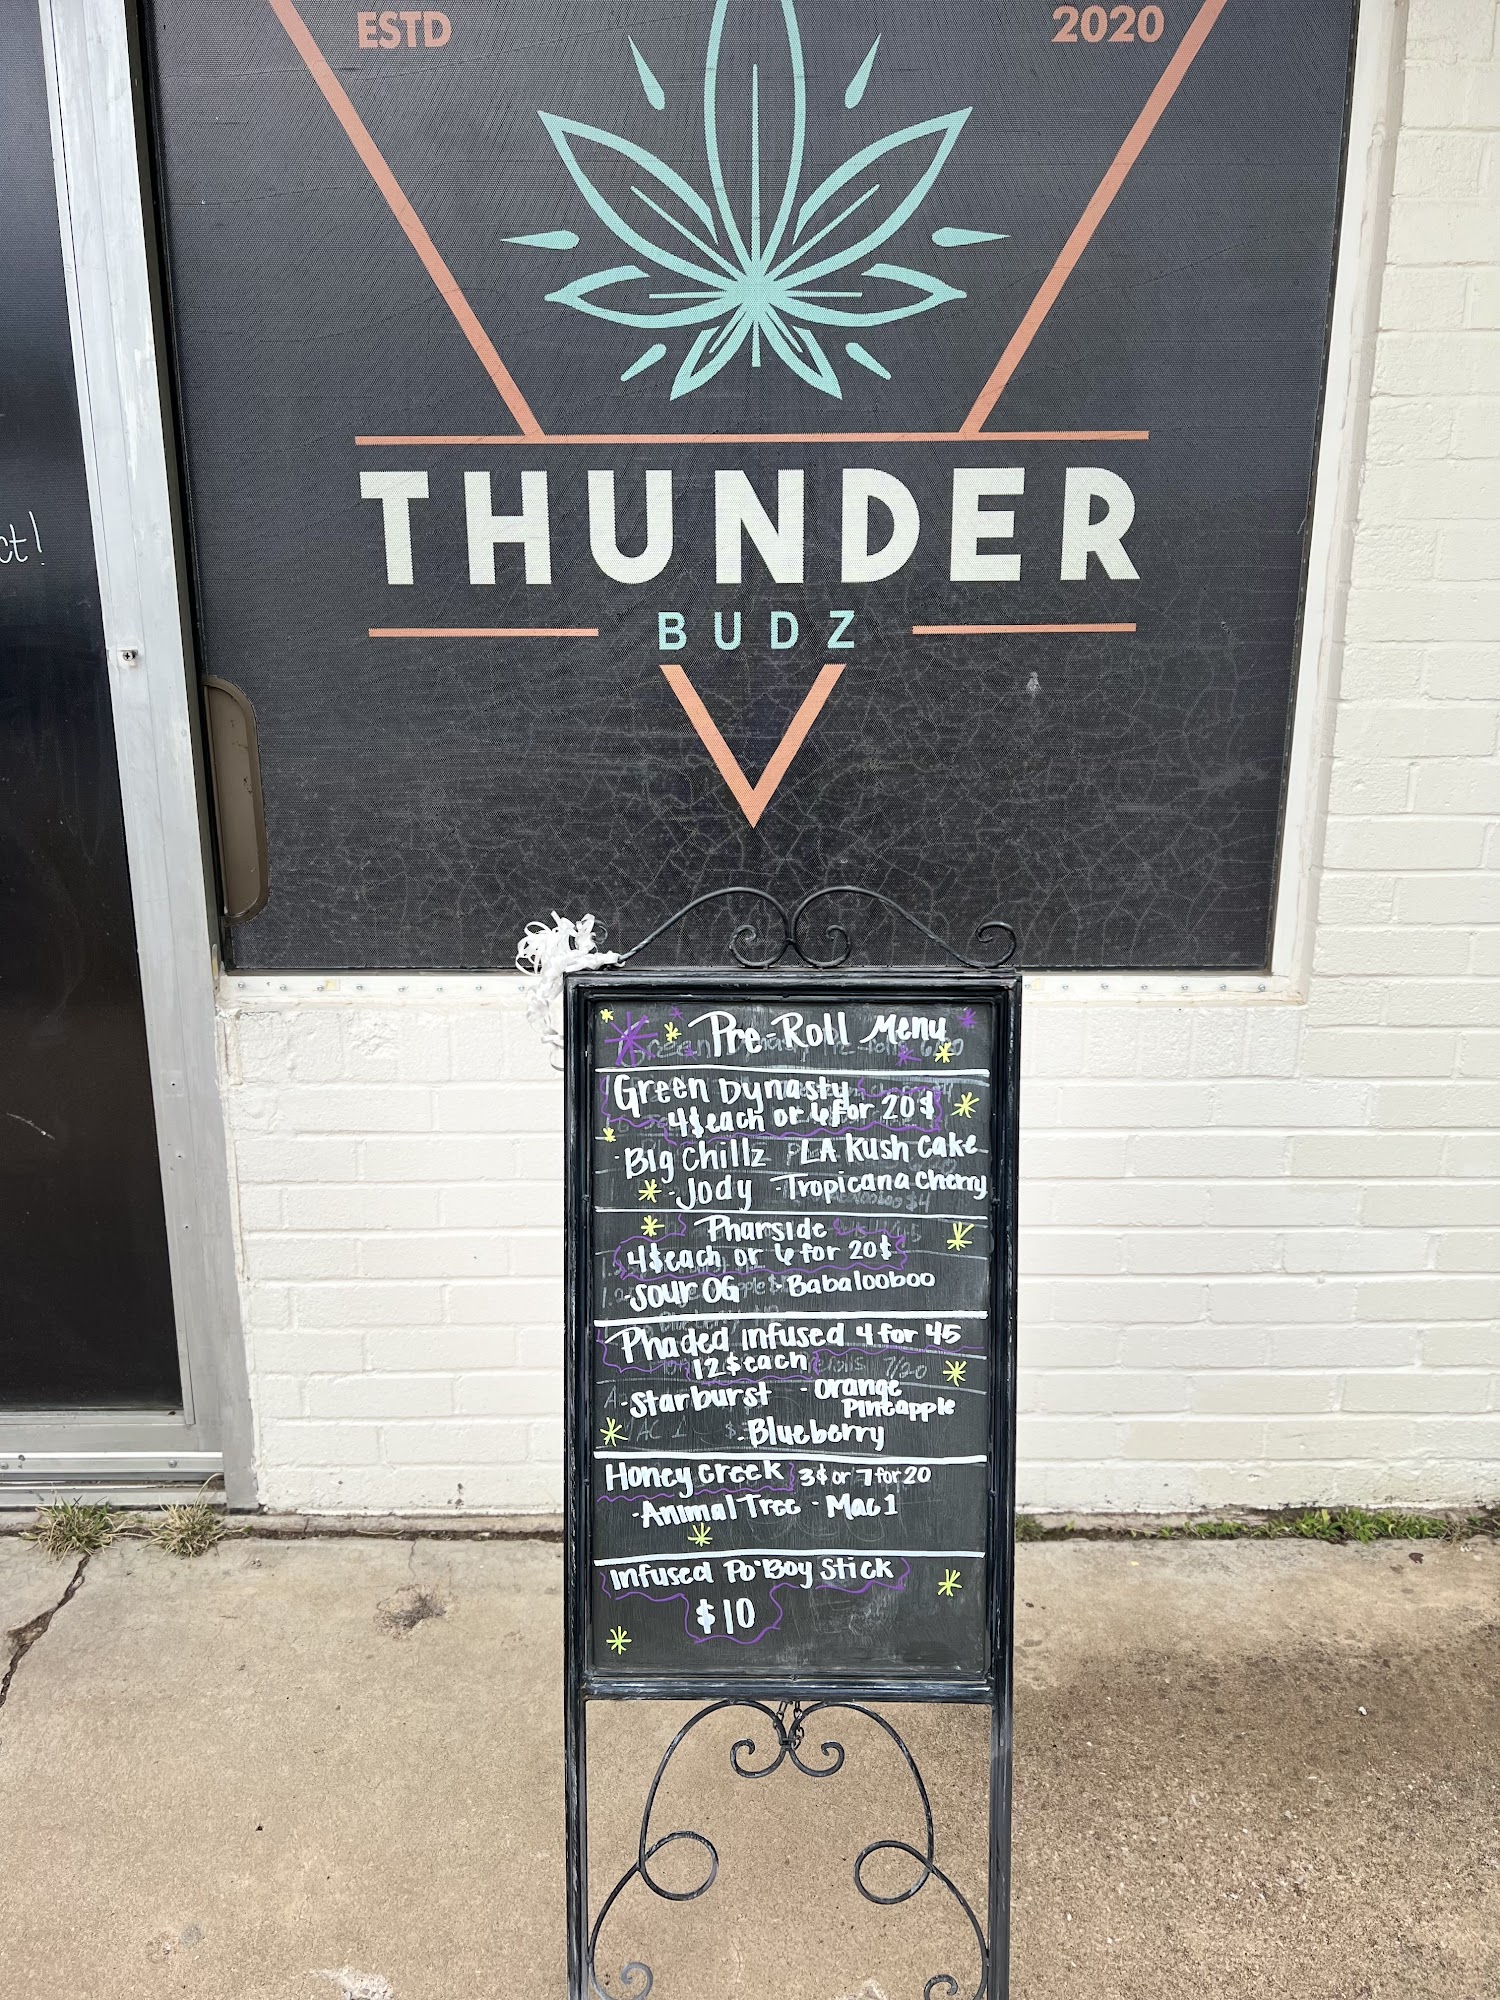 ESTD 2020
THUNDER
BUDZ
ct!
Pre-Roll Menu
Green Dynasty
4$ each or 6 for 20$
·Big Chillz ·LA Kush Cake
·Jody ·Tropicana Cherry
Pharside
4$ each or 6 for 20$
·Sour OG ·Babalooboo
Phaded infused 4 for 45
12$ each
·Starburst ·Orange
Pineapple
·Blueberry
Honey Creek 3$ or 7 for 20
·Animal Tree ·Mac 1
Infused Po'Boy Stick
$10